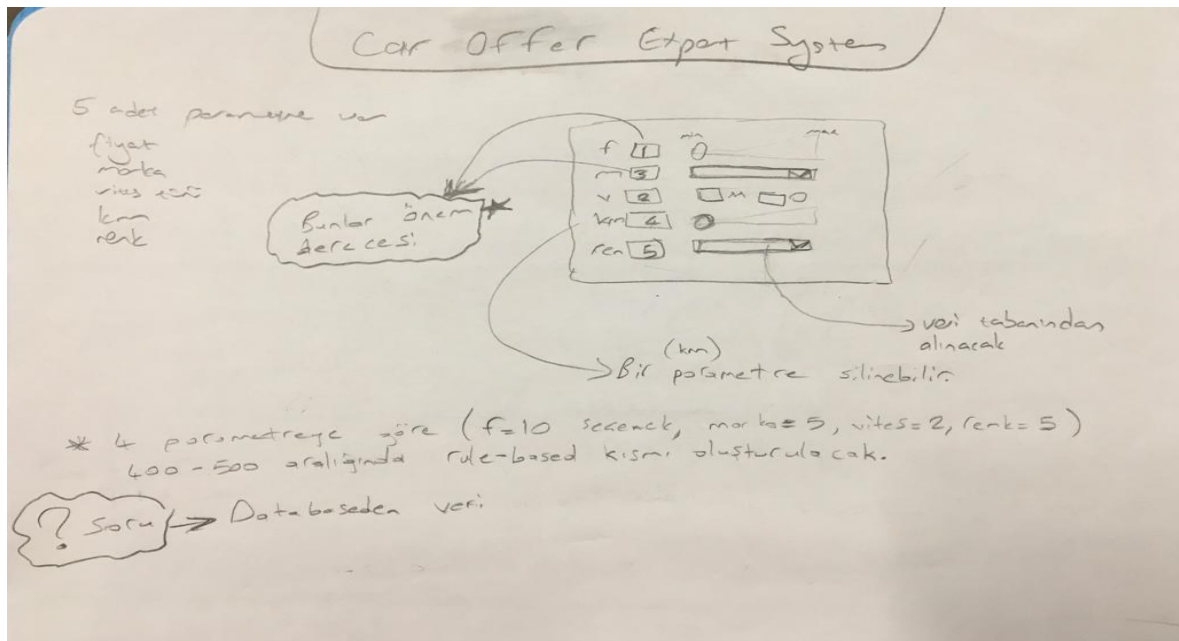 Car Offer Expert System
5 adet parametre var
fiyat
marka
vites türü
km
renk
Bunlar önem
derecesi
min max
f 1
m 3
v 2 M O
km 4
ren 5
veri tabanından
alınacak
(km)
Bir parametre silinebilir.
* 4 parametreye göre (f=10 seçenek, marka=5, vites=2, renk=5)
400-500 aralığında rule-based kısmı oluşturulacak.
? Soru → Databaseden veri